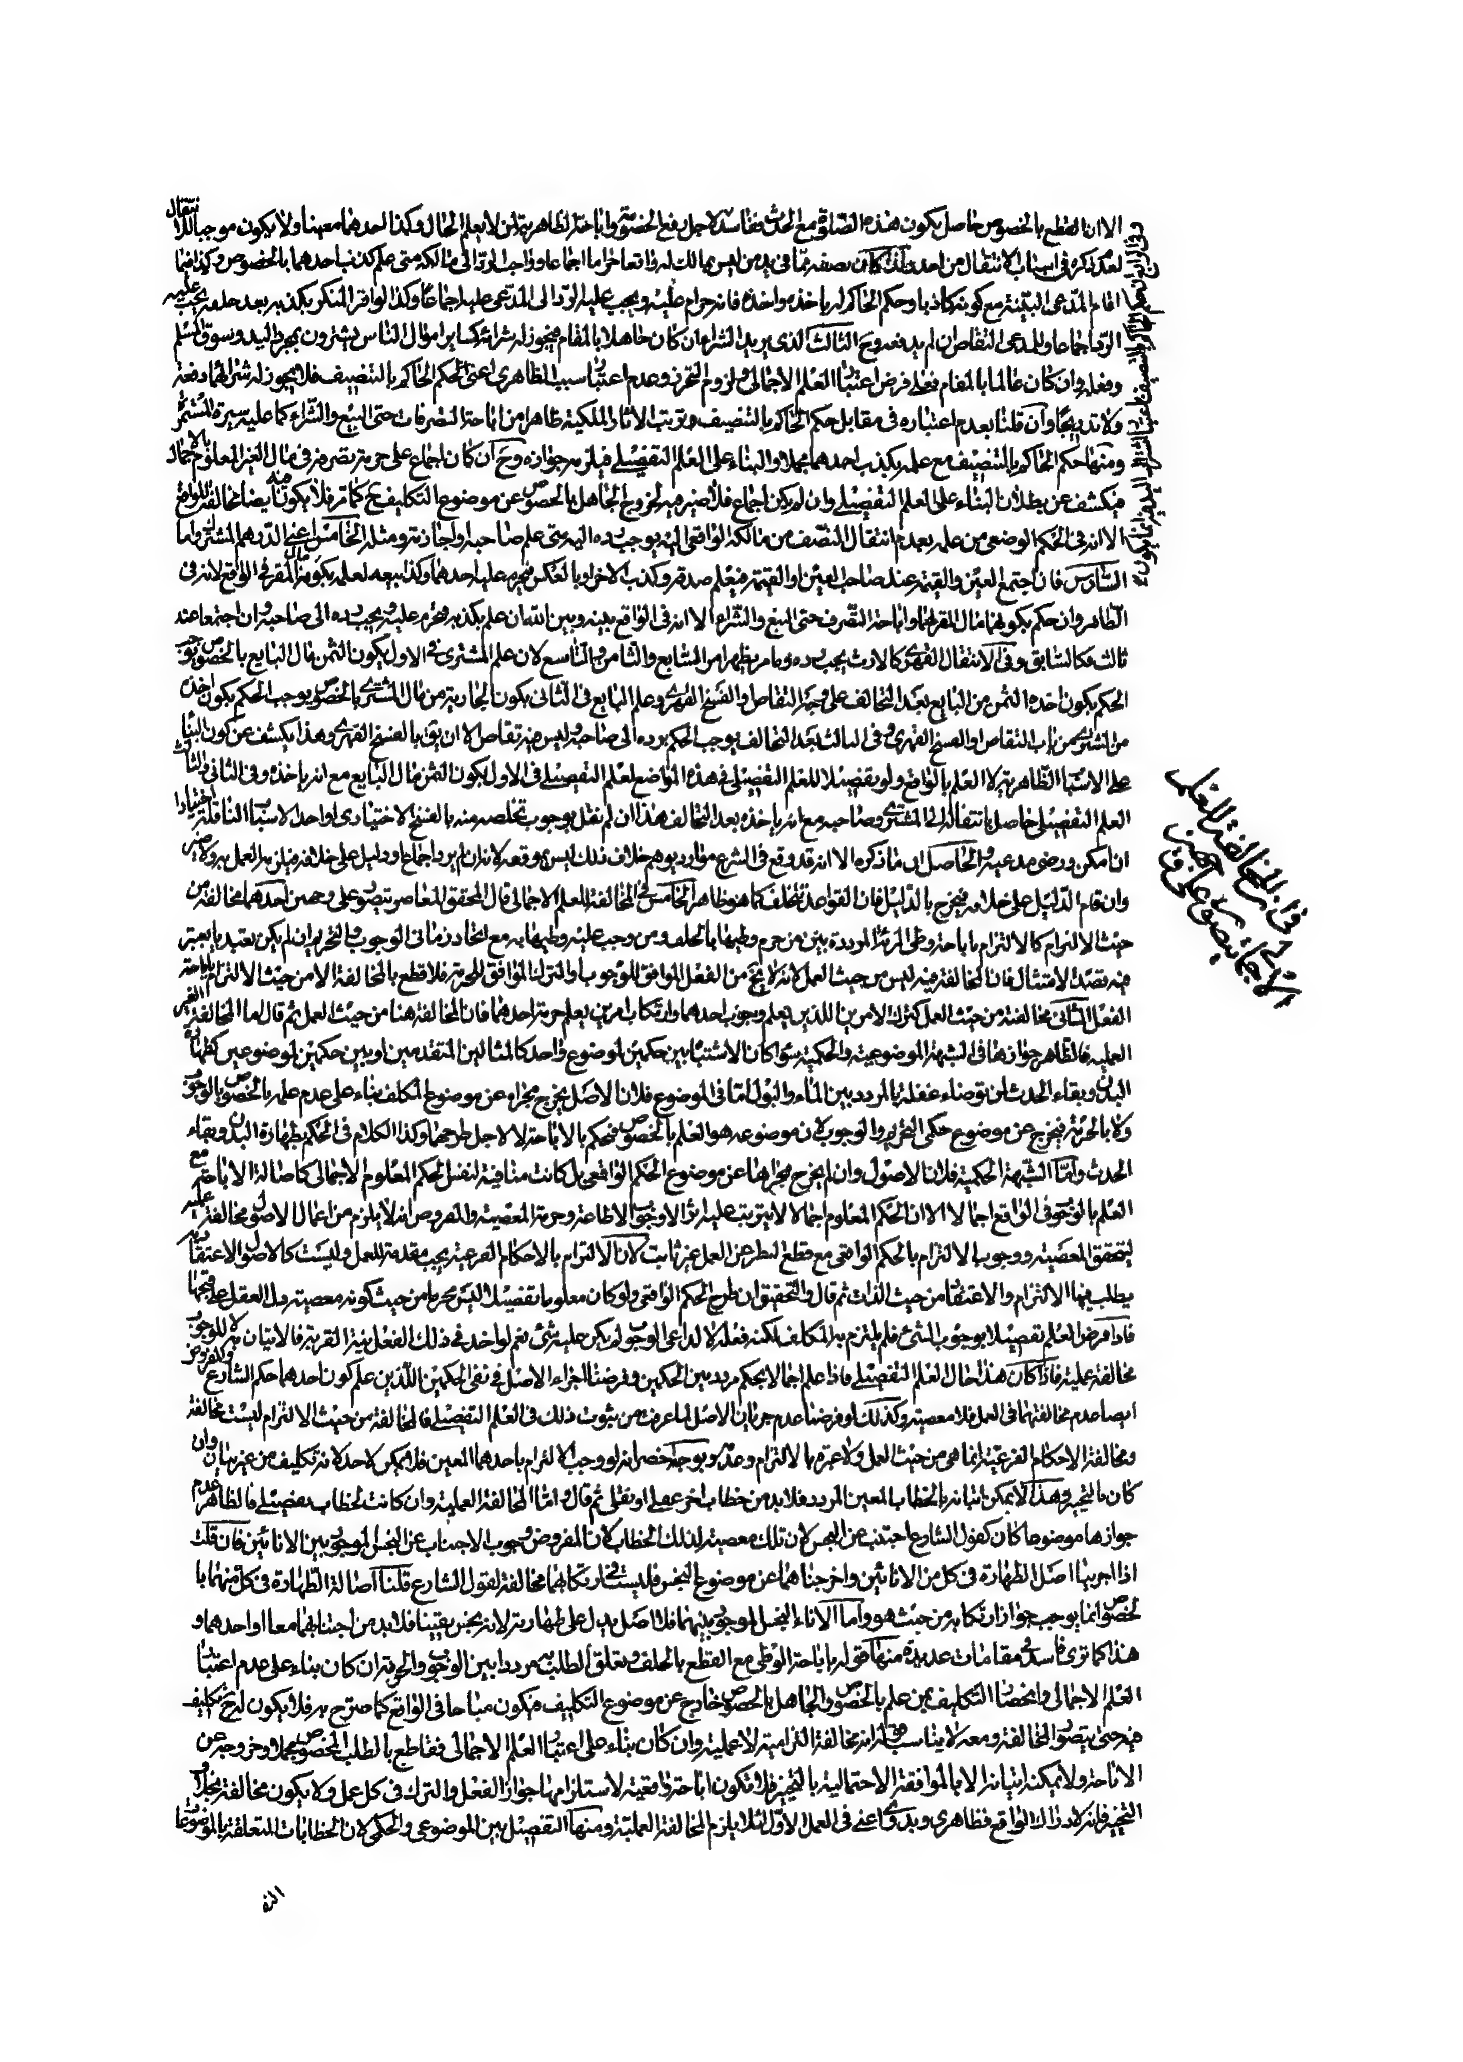 الا ان القطع بالخصوص حاصل بكون هذه الصلوة مع الحدث ففاسد لاجل رفع الخصومة واباحة لظاهرية لمن لا يعلم الحال وكذا احدهما معينا ولا يكون موجبا للانتقال
لعدم ذكره في اسباب الانتقال من احد واذا كان نصفه مما في يد من ليس بمالك له واقعا حراما اجماعا وواجب الرد الى مالكه متى علم كذب احدهما بالخصوص وكذا فيما
اقام المدعى البينة مع كونه كاذبا وحكم الحاكم له باخذه واخذه فانه حرام عليه ويجب عليه الرد الى المدعى عليه اجماعا وكذا لو اقر المنكر بكذبه بعد حلفه يجب عليه
الرد اجماعا وللمدعى التقاص ان لم يدفعه وح الثالث الذي يريد الشراء ان كان جاهلا بالمقام فيجوز له شرائه كساير اموال الناس يشترون بمجرد اليد وسوق المسلم
وفعله وان كان عالما بالمقام فعلى فرض اعتبار العلم الاجمالى ولزوم التحرز وعدم اعتبار سبب الظاهرى اعنى الحكم الحاكم بالتنصيف فلا يجوز له شرائهما دفعة
ولا تدريجا وان قلنا بعدم اعتباره في مقابل حكم الحاكم بالتنصيف وترتب الاثار الملكية ظاهرا من اباحة التصرفات حتى البيع والشراء كما عليه سيرة
ومنها حكم الحاكم بالتنصيف مع علمه بكذب احدهما مجملا والبناء على العلم التفصيلى فيلزم جوازه وح ان كان اجماع على حرمة تصرفه في مال الغير المعلوم بالاجمال
فيكشف عن بطلان البناء على العلم التفصيلى وان لم يكن اجماع فلا ضير فيه لخروج الجاهل بالخصوص عن موضوع التكليف ح كما مر فلا يكون منه ايضا مخالفة للواقع
الا انه في الحكم الوضعى من علمه بعدم انتقال النصف من مالكه الواقعى اليه يوجب رده اليه متى علم صاحبه او اجازته ومثله الخامس اعنى الدرهم المشترى واما
السادس فان اجتمع العين والقيمة عند صاحب العين او القيمة فيعلم صدقه وكذب الاخر او بالعكس فيحرم عليه احدهما وكذا بيعه لعلمه بكونه مال المقر في الواقع لانه في
الظاهر وان حكم بكونهما مال المقر لهما واباحة التصرف حتى البيع والشراء الا انه في الواقع بينه وبين الله ان علم بكذبه فحرم عليه ويجب رده الى صاحبه وان اجتمعا عند
ثالث فكالسابق وفى الانتقال القهرى كالارث يجب رده ومما مر يظهر امر السابع والثامن والتاسع لان علم المشترى في الاول بكون الثمن مال البايع بالخصوص يوجب
الحكم بكون اخذه الثمن من البايع بعد التحالف على وجه التقاص او الفسخ القهرى وعلم البايع في الثانى بكون الجارية من مال المشترى بالخصوص يوجب الحكم بكون اخذه
من المشترى من باب التقاص او الفسخ القهرى وفى الثالث بعد التحالف يوجب الحكم برده الى صاحبه وليس فيه تقاص الا ان يق بالفسخ القهرى وهذا يكشف عن كون البناء
على الاسباب الظاهرية لا العلم بالواقع ولو تفصيلا للعلم التفصيلى في هذه المواضع لعلم التفصيلى في الاول بكون الثمن مال البايع مع انه ياخذه وفى الثانى والثالث
العلم التفصيلى حاصل بانتقاله الى المشترى وصاحبه مع انه ياخذه بعد التحالف هذا ان لم نقل بوجوب تخلصه منه بالفسخ الاختيارى او احد الاسباب الناقلة اختيارا
ان امكن ورضى مدعيه والحاصل ان ما ذكره الا انه قد وقع في الشرع موارد يوهم خلاف ذلك ليس موقعه لانه ان لم يرد اجماعا ودليل على خلافه فيلزم العمل به ولا ضير
وان قام الدليل على خلافه فيخرج بالدليل فان القواعد تتخلف كما هو ظاهر الخامس في المخالفة للعلم الاجمالى قال المحقق المعاصر يتصور على وجهين احدهما مخالفته من
حيث الالتزام كالالتزام باباحة وطى المرئة المرددة بين من حرم وطيها بالحلف ومن وجب عليه وطيها به مع اتحاد زمانى الوجوب والتحريم ان لم يكن تعبديا يعتبر
فيه قصد الامتثال فان المخالفة فيه ليس من حيث العمل لانه لا يخ من الفعل الموافق للوجوب او الترك الموافق للحرمة فلا قطع بالمخالفة الا من حيث الالتزام باباحة
الفعل الثانى مخالفته من حيث العمل كترك الامرين اللذين يعلم وجوب احدهما وارتكاب امرين يعلم حرمة احدهما فان المخالفة هنا من حيث العمل ثم قال اما المخالفة الغير
العملية فالظاهر جوازها في الشبهة الموضوعية والحكمية سواء كان الاشتباه بين حكمين لموضوع واحد كالمثالين المتقدمين او بين حكمين لموضوعين كطهارة
البدن وبقاء الحدث لمن توضاء غفلة بالمردد بين الماء والبول اما في الموضوع فلان الاصل يخرج مجراه عن موضوع المكلف بناء على عدم علمه بالخصوص بالوجوب
ولا بالحرمة فيخرج عن موضوع حكمى التحريم والوجوب لان موضوعه هو العلم بالخصوص فنحكم بالاباحة لا لاجل طرحهما وكذا الكلام في الحكم بطهارة البدن وبقاء
الحدث واما الشبهة الحكمية فلان الاصول وان لم يخرج مجراها عن موضوع الحكم الواقعى بل كانت منافية لنفس الحكم المعلوم الاجمالى كاصالة الاباحة مع
العلم بالوجوب في الواقع اجمالا الا ان الحكم المعلوم اجمالا لا يترتب عليه اثر الا وجوب الاطاعة وحرمة المعصية والمفروض انه لا يلزم من اعمال الاصول مخالفة عليه
ليتحقق المعصية ووجوب الالتزام بالحكم الواقعى مع قطع النظر عن العمل غير ثابت لان الالتزام بالاحكام الفرعية يجب مقدمة للعمل وليست كالاصول الاعتقادية
يطلب فيها الالتزام والاعتقاد من حيث الذات ثم قال والتحقيق ان طرح الحكم الواقعى ولو كان معلوما تفصيلا ليس محرما من حيث كونه معصية دل العقل على قبحها
فاذا فرض العلم تفصيلا بوجوب الشئ فلم يلتزم به المكلف لكنه فعله لا لداعى الوجوب لم يكن عليه شئ نعم لو اخذ في ذلك الفعل نية القربة فالاتيان به لا للوجوب
مخالفة عملية فاذا كان هذا حال العلم التفصيلى فاذا علم اجمالا بحكم مردد بين الحكمين وفرضنا اجراء الاصل في نفى الحكمين اللذين علم كون احدهما حكم الشارع والمفروض
ايضا عدم مخالفتهما في العمل فلا معصية وكذلك لو فرضنا عدم جريان الاصل لما عرفت من ثبوت ذلك في العلم التفصيلى فالمخالفة من حيث الالتزام ليست مخالفة
ومخالفة الاحكام الفرعية انما هي من حيث العمل ولا عبرة بالالتزام وعدمه وبوجه اخصر انه لو وجب الالتزام باحدهما المعين فلا يمكن لاحد لانه تكليف من غير بيان وان
كان بالتخيير وهذا لا يمكن اثباته بالخطاب المعين المردد فلابد من خطاب اخر عقلى او نقلى ثم قال واما المخالفة العملية وان كانت لخطاب تفصيلى فالظاهر عدم
جوازها موضوعا كان كقول الشارع اجتنب عن النجس لان تلك معصية لذلك الخطاب لان المفروض وجوب الاجتناب عن النجس الموجود بين الانائين فان قلت
اذا اجرينا اصل الطهارة في كل من الانائين واخرجناهما عن موضوع النجس فليست في ارتكابهما مخالفة لقول الشارع قلنا اصالة الطهارة في كل منهما با
لخصوص انما يوجب جواز ارتكابه من حيث هو واما الاناء النجس الموجود بينهما فلا اصل يدل على طهارته لانه نجس يقينا فلابد من اجتنابهما معا او احدهما و
هذا كما ترى فاسد في مقامات عديدة منها قوله باباحة الوطى مع القطع بالحلف وتعلق الطلب به مرددا بين الوجوب والحرمة ان كان بناء على عدم اعتبار
العلم الاجمالى وانحصار التكليف بمن علم بالخصوص والجاهل بالخصوص خارج عن موضوع التكليف فيكون مباحا في الواقع كما صرح به فلا يكون له ح تكليف
فيه حتى يتصور المخالفة ومعه لا يناسب قوله انه مخالفة التزامية لا عملية وان كان بناء على اعتبار العلم الاجمالى فقاطع بالطلب المخصوص مجملا وخروجه عن
الاباحة ولا يمكنه اتيانه الا بالموافقة الاحتمالية بالتخيير فلا تكون اباحة واقعية لاستلزامها جواز الفعل والترك في كل عمل ولا يكون مخالفة بخلاف
التخيير فانه لادراك الواقع فظاهرى وبدوى اعنى في العمل الاول لئلا يلزم المخالفة العملية ومنها التفصيل بين الموضوعى والحكمى لان الخطابات المتعلقة بالموضوعا
في المخالفة للعلم
الاجمالى يتصور على وجهين